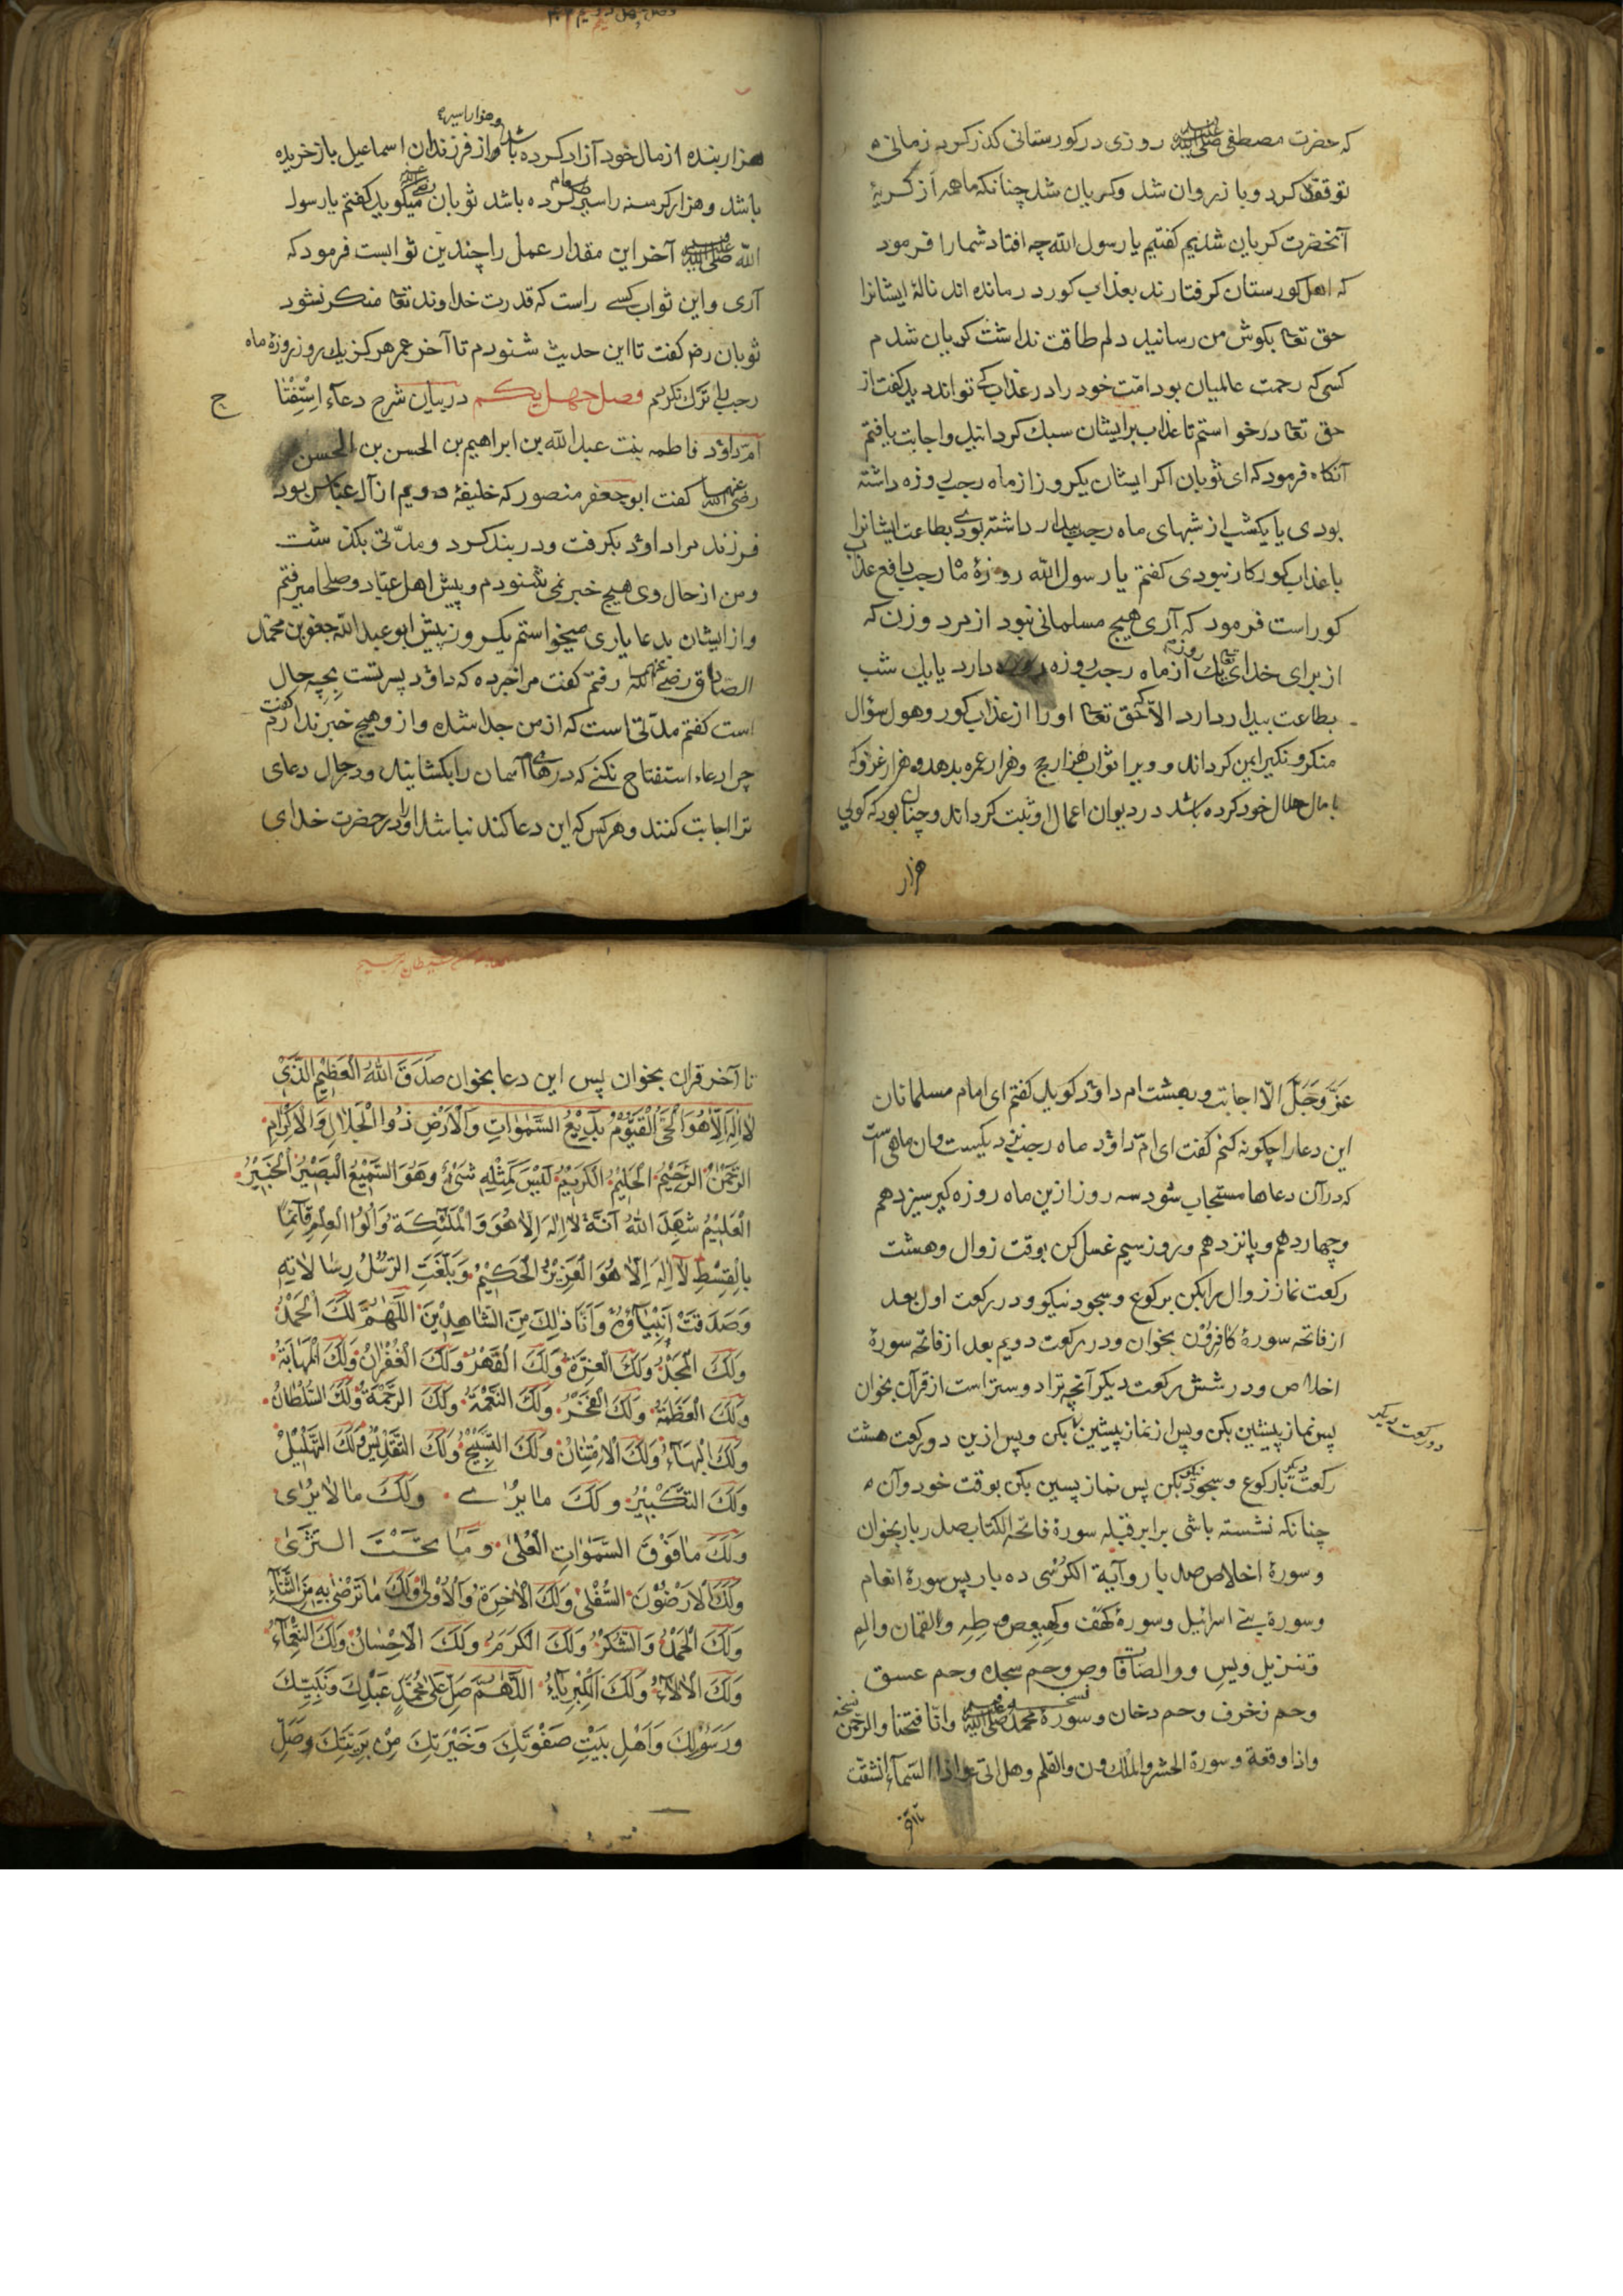 که حضرت مصطفی صلی الله علیه وسلم روزی در کورستانی کذر کرد زمانی
توقف کرد و باز روان شد و کریان شد چنانکه ما همه از کریهٔ
آنحضرت کریان شدیم کفتیم یا رسول الله چه افتاد شما را فرمود
که اهل کورستان کرفتارند بعذاب کور درمانده اند نالهٔ ایشانرا
حق تعا بکوش من رسانید دلم طاقت نداشت کریان شدم
کسی که رحمت عالمیان بود امّت خود را در عذاب کے تواند دید کفت از
حق تعا درخواستم تا عذاب بر ایشان سبک کردانید و اجابت یافتم
آنکاه فرمود که ای ثوبان اکر ایشان یکروز از ماه رجب روزه داشته
بودی یا یکشب از شبهای ماه رجب بیدار داشته بودے بطاعت ایشانرا
با عذاب کور کار نبودی کفتم یا رسول الله روزهٔ ماه رجب دافع عذاب
کور است فرمود که آری هیچ مسلمانی نبود از مرد و زن که
از برای خدای تعا یک روزه از ماه رجب روزه دارد یا یک شب
بطاعت بیدار دارد الّا حق تعا او را از عذاب کور و هول سؤال
منکر و نکیر ایمن کرداند و ویرا ثواب هزار حج و هزار عمره بدهد و هزار غزو که
با مال حلال خود کرده باشد در دیوان اعمال او ثبت کرداند و چنان بود که کویی
هزار
و هزار اسیر
هزار بنده از مال خود آزاد کرده باشد و از فرزندان اسماعیل باز خریده
باشد و هزار کرسنه را سیر کرده باشد ثوبان رضی الله عنه میکوید کفتم یا رسول
الله صلی الله علیه وسلم آخر این مقدار عمل را چندین ثوابست فرمود که
آری و این ثواب کسے راست که قدرت خداوند تعا منکر نشود
ثوبان رض کفت تا این حدیث شنودم تا آخر عمر هرکز یک روز روزهٔ ماه
رجب را ترک نکردم فصل چهل یکم در بیان شرح دعآء اِسْتِفْتا
ح
امّ داؤد فاطمه بنت عبد الله بن ابراهیم بن الحسن بن الحسن
رضی الله عنهما کفت ابو جعفر منصور که خلیفهٔ دویم از آل عبّاس بود
فرزند مرا داؤد بکرفت و در بند کرد و مدّتی بکذشت
و من از حال وی هیچ خبر نمی شنودم و پیش اهل عبّاد و صلحا میرفتم
و از ایشان بدعا یاری میخواستم یکروز پیش ابو عبد الله جعفر بن محمّد
الصّادق رضی الله عنهما رفتم کفت مرا خبر ده که داؤد پسر تست بچه حال
است کفتم مدّتی است که از من جدا شده و از و هیچ خبر ندارم کفت
چرا دعاء استفتاح نکنے که درهاے آسمان را بکشایند و در حال دعای
ترا اجابت کنند و هر کس که این دعا کند نباشد او را در حضرت خدای
عَزَّ وَجَلَّ الّا اجابت و بهشت ام داؤد کوید کفتم ای امام مسلمانان
این دعا را چکونه کنم کفت ای امّ داؤد ماه رجب نزدیکست و آن ماهی است
که در آن دعاها مستجاب شود سه روز ازین ماه روزه کیر سیزدهم
و چهاردهم و پانزدهم و روز سیم غسل کن بوقت زوال و هشت
رکعت نماز زوال را بکن برکوع و سجود نیکو و در رکعت اول بعد
از فاتحه سورهٔ کافرون بخوان و در رکعت دویم بعد از فاتحه سورهٔ
اخلاص و در شش رکعت دیکر آنچه ترا دوستر است از قرآن بخوان
پس نماز پیشین بکن و پس از نماز پیشین بکن و پس ازین دو رکعت هشت
دو رکعت دیکر
رکعت دیکر با رکوع و سجود نیکو بکن پس نماز پسین بکن بوقت خود و آن
چنانکه نشسته باشی برابر قبله سورهٔ فاتحة الکتاب صد بار بخوان
و سورهٔ اخلاص صد بار و آیة الکرسی ده بار پس سورهٔ انعام
و سورهٔ بنے اسرائیل و سورهٔ کهف و کهیعص و طه و القمان و الم
تنزیل و یس و والصّافات و ص و حم سجده و حم عسق
و حم زخرف و حم دخان و سورهٔ محمد صلی الله علیه وسلم و انّا فتحنا و الرّحمن
و اذا وقعة و سورة الحشر و الملک و ن والقلم و هل اتی و اذا السّمآء انشقّت
تا آخر
تا آخر قرآن بخوان پس این دعا بخوان صَدَقَ اللهُ الْعَظِیْمُ الَّذِیْ
لَا اِلٰهَ اِلَّا هُوَ الْحَیُّ الْقَیُّوْمُ بَدِیْعُ السَّمٰوَاتِ وَالْاَرْضِ ذُوا الْجَلَالِ وَالْاِکْرَامِ
الرَّحْمٰنُ الرَّحِیْمُ الْحَلِیْمُ الْکَرِیْمُ لَیْسَ کَمِثْلِهِ شَیْءٌ وَهُوَ السَّمِیْعُ الْبَصِیْرُ الْخَبِیْرُ
الْعَلِیْمُ شَهِدَ اللهُ اَنَّهُ لَا اِلٰهَ اِلَّا هُوَ وَالْمَلٰئِکَةُ وَاُولُوا الْعِلْمِ قَائِمًا
بِالْقِسْطِ لَا اِلٰهَ اِلَّا هُوَ الْعَزِیْزُ الْحَکِیْمُ وَبَلَّغَتِ الرُّسُلُ رِسَالَاتِهِ
وَصَدَقَتْ اَنْبِیَآؤُهُ وَاَنَا ذٰلِکَ مِنَ الشَّاهِدِیْنَ اَللّٰهُمَّ لَکَ الْحَمْدُ
وَلَکَ الْمَجْدُ وَلَکَ الْعِزَّةُ وَلَکَ الْقَهْرُ وَلَکَ الْغُفْرَانُ وَلَکَ الْمَهَابَةُ
وَلَکَ الْعَظَمَةُ وَلَکَ الْفَخْرُ وَلَکَ النِّعْمَةُ وَلَکَ الرَّحْمَةُ وَلَکَ السُّلْطَانُ
وَلَکَ الْبَهَاءُ وَلَکَ الْاِمْتِنَانُ وَلَکَ التَّسْبِیْحُ وَلَکَ التَّقْدِیْسُ وَلَکَ التَّهْلِیْلُ
وَلَکَ التَّکْبِیْرُ وَلَکَ مَا یُرٰے وَلَکَ مَا لَا یُرٰی
وَلَکَ مَا فَوْقَ السَّمٰوَاتِ الْعُلٰی وَمَا تَحْتَ الثَّرٰی
وَلَکَ الْاَرَضُوْنَ السُّفْلٰی وَلَکَ الْاٰخِرَةُ وَالْاُوْلٰی وَلَکَ مَا تَرْضٰی بِهِ مِنَ الثَّنَآءِ
وَلَکَ الْحَمْدُ وَالشُّکْرُ وَلَکَ الْکَرَمُ وَلَکَ الْاِحْسَانُ وَلَکَ النَّعْمَآءُ
وَلَکَ الْاٰلَاءُ وَلَکَ الْکِبْرِیَآءُ اَللّٰهُمَّ صَلِّ عَلٰی مُحَمَّدٍ عَبْدِکَ وَنَبِیِّکَ
وَرَسُوْلِکَ وَاَهْلِ بَیْتِ صَفْوَتِکَ وَخَیْرَتِکَ مِنْ بَرِیَّتِکَ وَصَلِّ